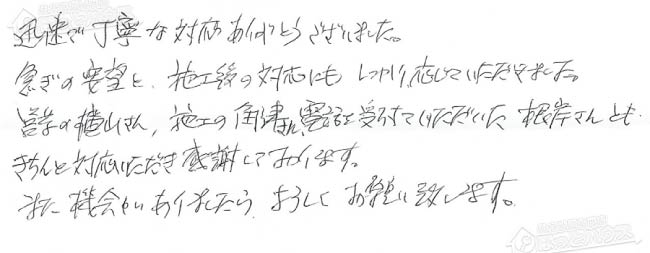 迅速で丁寧な対応ありがとうございました。
急ぎの要望と、施工後の対応にもしっかり応じていただきました。
営業の横山さん、施工の角津さん、電話を受付ていただいた根岸さんとも
きちんと対応いただき感謝しております。
また機会がありましたら、よろしくお願い致します。